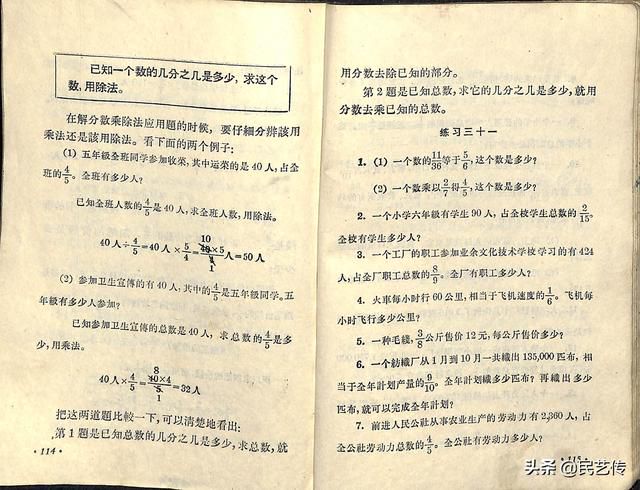 已知一个数的几分之几是多少，求这个
数，用除法。
在解分数乘除法应用题的时候，要仔細分辨該用
乘法还是該用除法。看下面的两个例子：
(1) 五年級全班同学参加收菜，其中运菜的是40人，占全
班的4/5。全班有多少人？
已知全班人数的4/5是40人，求全班人数，用除法。
40人÷4/5=40人×5/4=40×5/4=50人
10
1
(2) 参加卫生宣傳的有40人，其中的4/5是五年級同学。五
年級有多少人参加？
已知参加卫生宣傳的总数是40人，求总数的4/5是多
少，用乘法。
40人×4/5=40×4/5=32人
8
1
把这两道題比較一下，可以清楚地看出：
第1題是已知总数的几分之几是多少，求总数，就
·114·
用分数去除已知的部分。
第2題是已知总数，求它的几分之几是多少，就用
分数去乘已知的总数。
练习三十一
1. (1) 一个数的11/36等于5/6，这个数是多少？
(2) 一个数乘以2/7得4/5，这个数是多少？
2. 一个小学六年級有学生90人，占全校学生总数的2/15。
全校有学生多少人？
3. 一个工厂的职工参加业余文化技术学校学习的有424
人，占全厂职工总数的8/9。全厂有职工多少人？
4. 火車每小时行60公里，相当于飞机速度的1/6。飞机每
小时飞行多少公里？
5. 一种毛綫，3/8公斤售价12元，每公斤售价多少？
6. 一个紡織厂从1月到10月一共織出135,000匹布，相
当于全年計划产量的9/10。全年計划織多少匹布？再織出多少
匹布，就可以完成全年計划？
7. 前进人民公社从事农业生产的劳动力有2,360人，占
全公社劳动力总数的4/5。全公社有劳动力多少人？
·115·
头条@民艺传